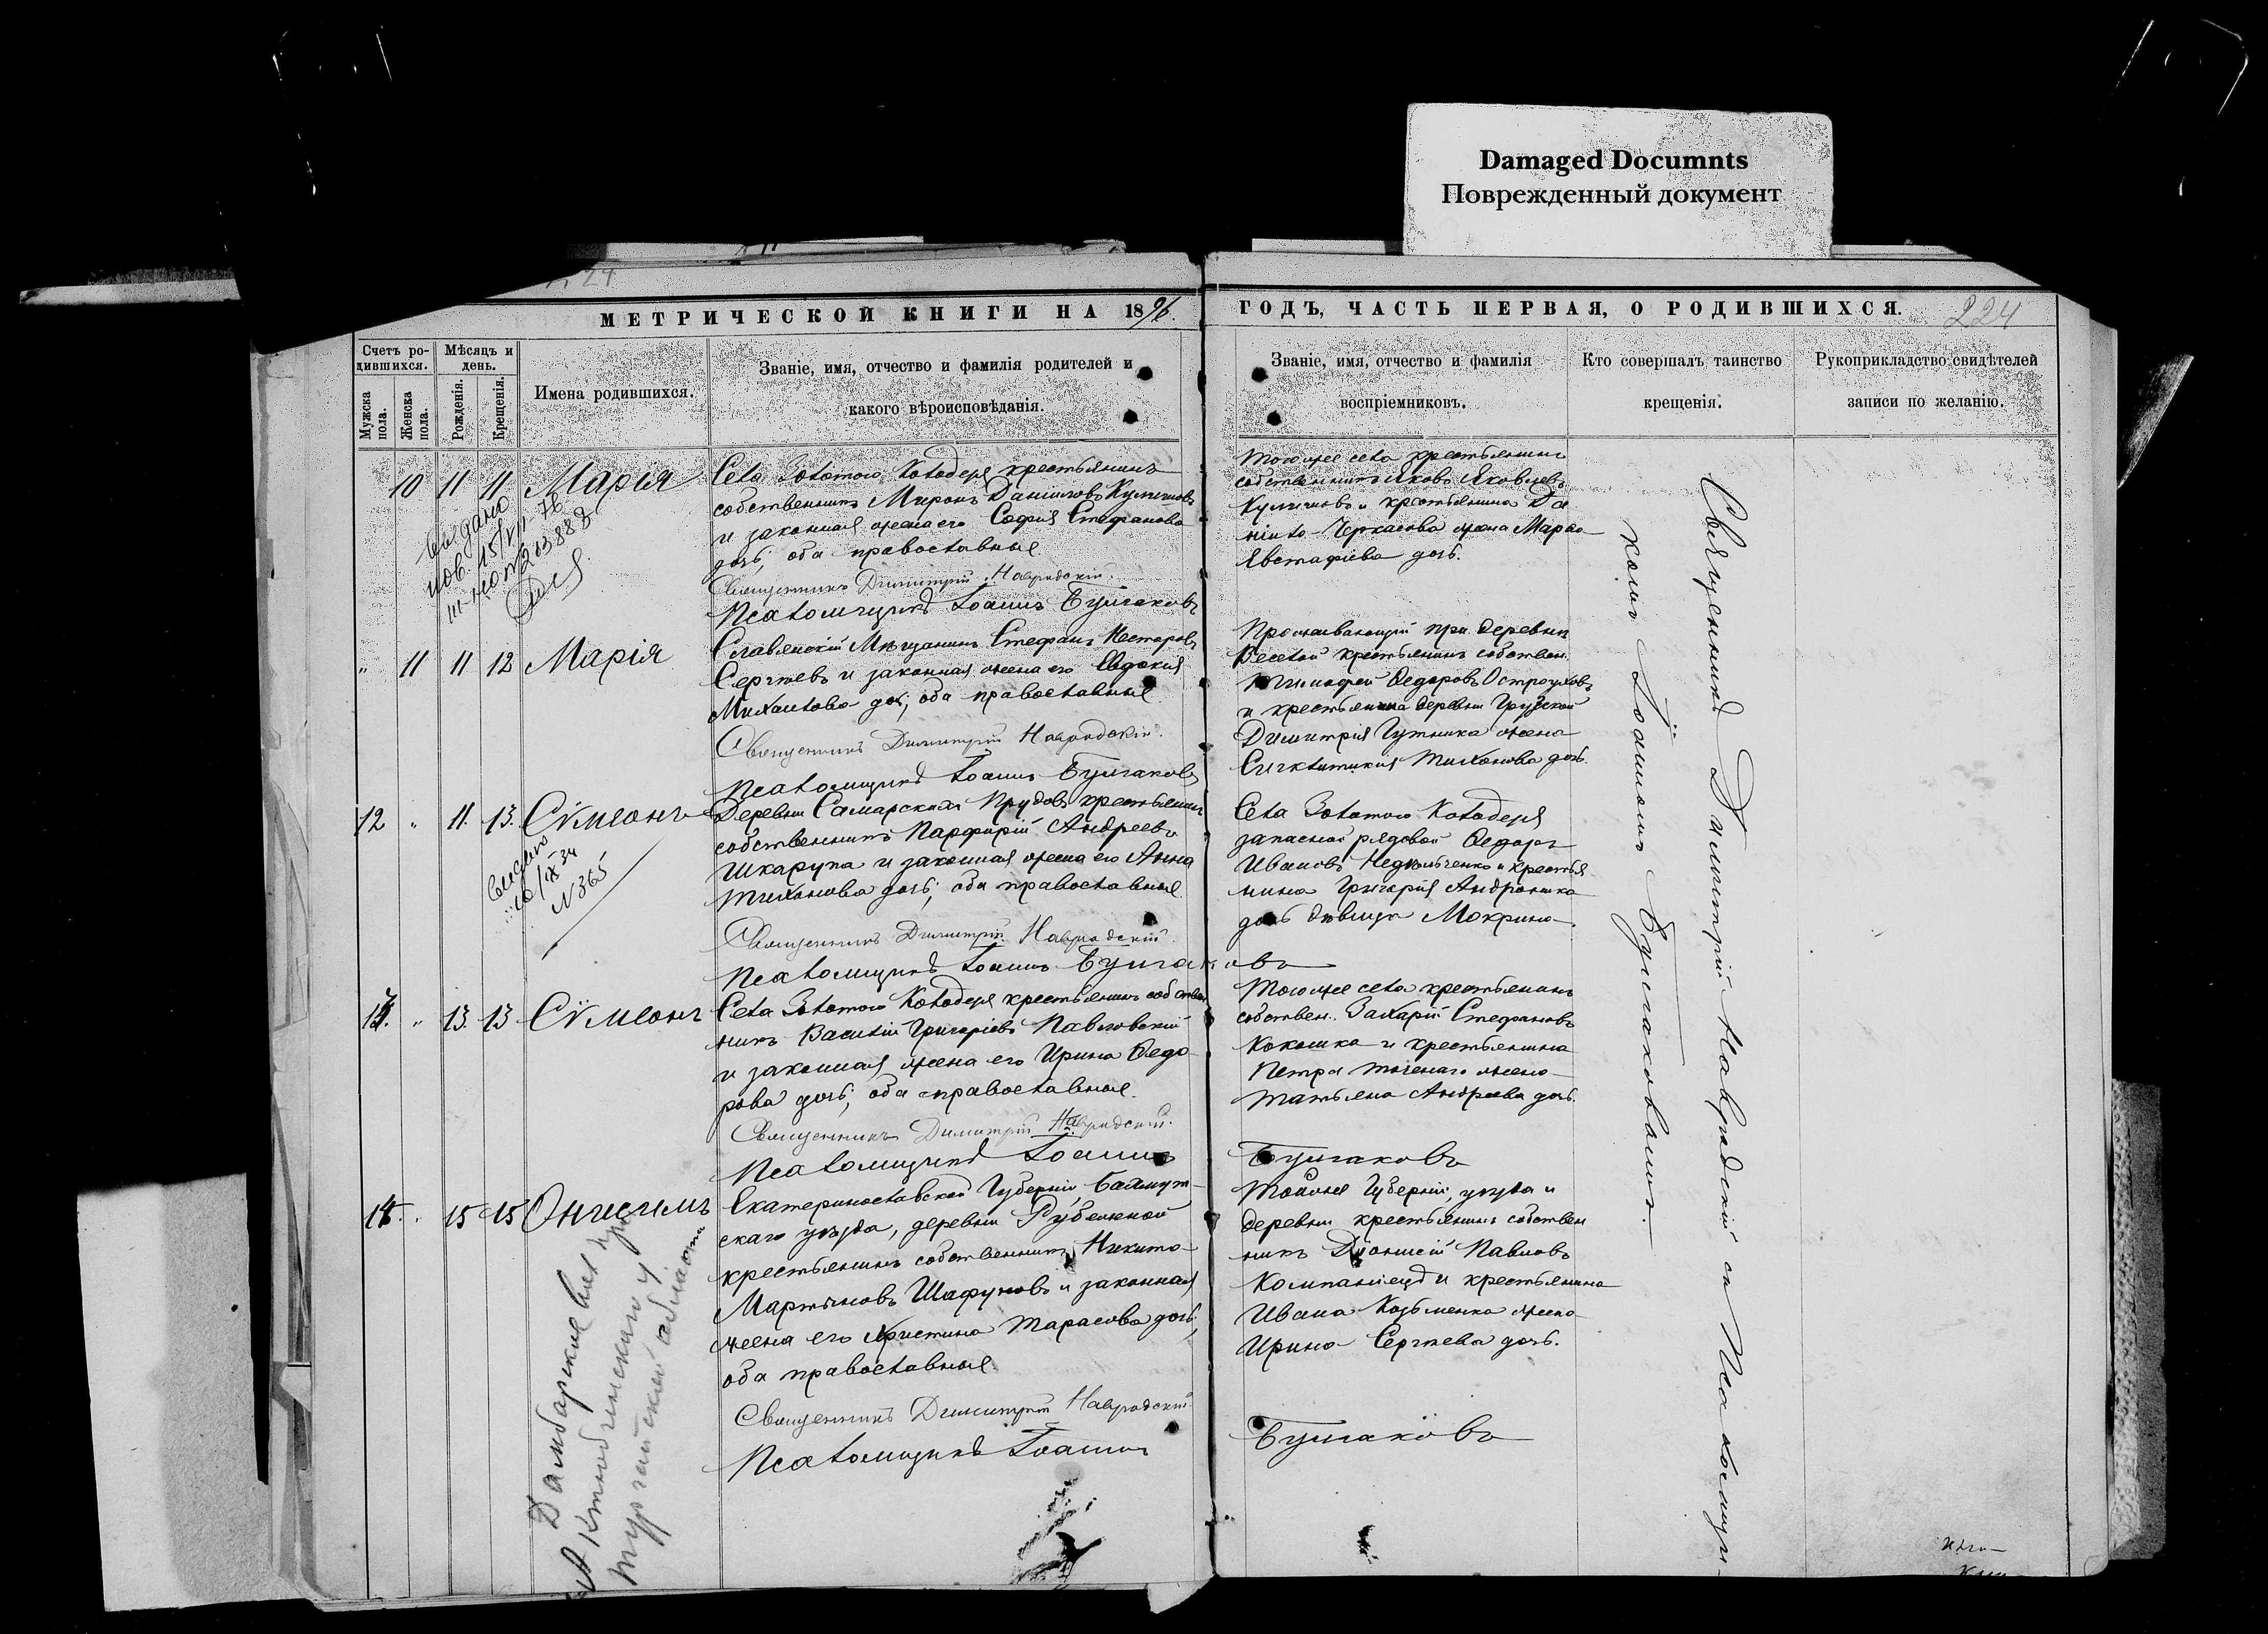 Damaged Documnts
Поврежденный документ
24
МЕТРИЧЕСКОЙ КНИГИ НА 1896.
ГОДЪ, ЧАСТЬ ПЕРВАЯ, О РОДИВШИХСЯ.
224
Счетъ ро-
дившихся.
Мужска
пола.
Женска
пола.
Мѣсяцъ и
день.
Рожденія.
Крещенія.
Имена родившихся.
Званіе, имя, отчество и фамилія родителей и
какого вѣроисповѣданія.
Званіе, имя, отчество и фамилія
воспріемниковъ.
Кто совершалъ таинство
крещенія.
Рукоприкладство свидѣтелей
записи по желанію.
10 11 11 Марія
Села Золотого Колодезя крестьянинъ
собственникъ Миронъ Даніиловъ
и законная жена его Софія Стефанова
дочь, оба православные
Священникъ Димитрій Навродскій.
Псаломщикъ Іоаннъ Булгаковъ
Тогоже села крестьянинъ
собственникъ Яковъ Яковлевъ
и крестьянина Да
ніила Черкасова жена
Евстафіева дочь.
" 11 11 12 Марія
Славянскій Мѣщанинъ Стефанъ Несторовъ
Сергѣевъ и законная жена его Евдокія
Михаилова дочь, оба православные
Священникъ Димитрій Навродскій.
Псаломщикъ Іоаннъ Булгаковъ
Проживающій при деревнѣ
Веселой крестьянинъ собствен.
Тимофей Ѳедоровъ Остроуховъ
и крестьянина деревни Грузской
Димитрія Гутника жена
Синклитикія Тихонова дочь.
12 " 11. 13. Сѵмеонъ
Выдано
N 365
Деревни Самарскихъ Прудовъ крестьянинъ
собственникъ Парфирій Андреевъ
Шкарупа и законная жена его Анна
Тихонова дочь, оба православные
Священникъ Димитрій Навродскій.
Псаломщикъ Іоаннъ Булгаковъ
Села Золотого Колодезя
запасной рядовой Ѳедоръ
Ивановъ Недѣльченко и крестья
нина Григорія Андроника
дочь дѣвица Мокрина.
" 13. 13 Сѵмеонъ
Села Золотого Колодезя крестьянинъ собствен
никъ Василій Григоріевъ Павловскій
и законная жена его Ирина Ѳедо
рова дочь, оба православные.
Священникъ Димитрій Навродскій.
Псаломщикъ Іоаннъ Булгаковъ
Тогоже села крестьянинъ
собствен. Захарій Стефановъ
Кокошка и крестьянина
Петра жена
Татьяна Андреева дочь.
15 15 Онисимъ
Екатеринославской Губерніи Бахмут-
скаго уѣзда, деревни Рубежной
крестьянинъ собственникъ Никита
Мартыновъ Шафуновъ и законная
жена его Христина Тарасова дочь,
оба православные.
Священникъ Димитрій Навродскій.
Псаломщикъ Іоаннъ Булгаковъ
Тойже Губерніи, уѣзда и
деревни крестьянинъ собствен
никъ Діонисій Павловъ
Компаніецъ и крестьянина
Ивана Козьменка жена
Ирина Сергѣева дочь.
Священникъ Димитрій Навродскій съ Псаломщи-
комъ Іоанномъ Булгаковымъ.
Актюбинскаго у
Тургайской области